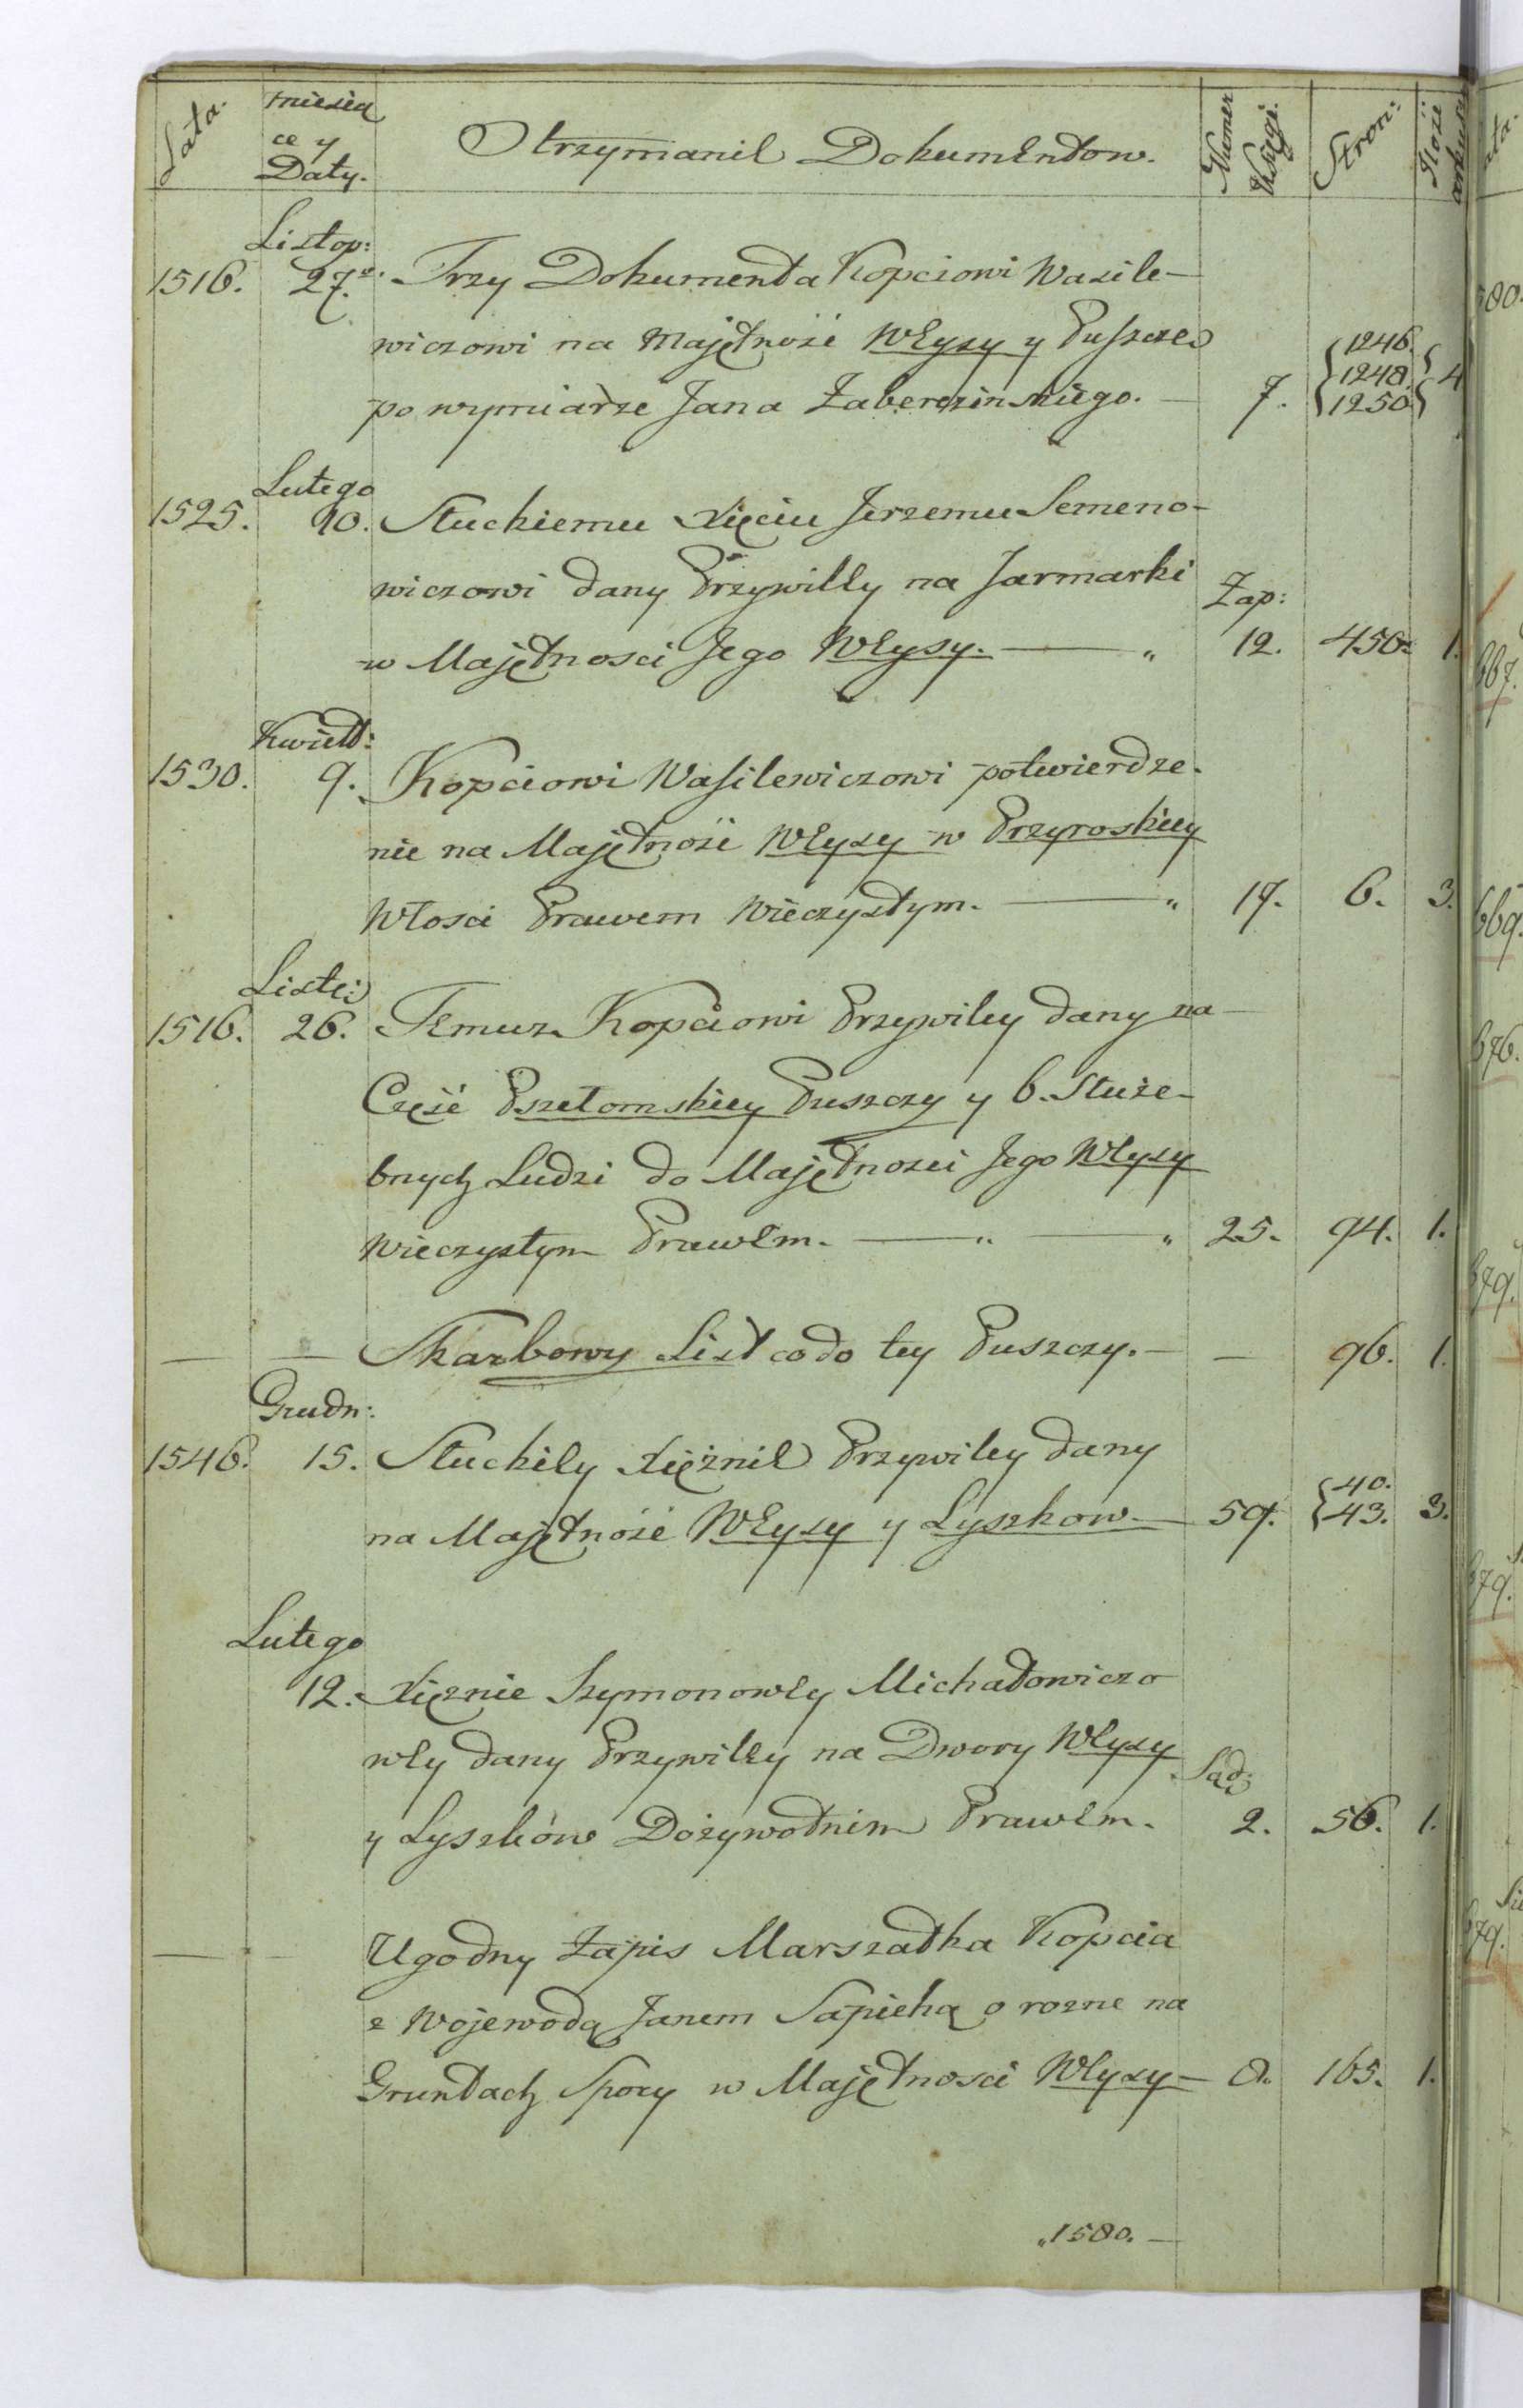 Lata. miesią Otrzymanie Dokumentow. Numer Xięgi. Stron: Ilość arkuszy
ce y
Daty.
Listop:
1516. 27.a Trzy Dokumenta Kopciowi Wasile-
wiczowi na Majętność Włysy y Puszcze 1246.
1248. 4
po wymiarze Jana Zaberezinskiego. — 7. 1250.
Lutego
1525. 20. Słuckiemu Xięciu Jerzemu Semeno-
wiczowi dany Przywilly na Jarmarki Zap:
w Majętnosci Jego Włysy. — „ 12. 450. 1.
Kwiet:
1530. 9. Kopciowi Wasilewiczowi potwierdze-
nie na Majętność Włysy w Przyroskiey
Włosci Prawem Wieczystym. — „ 17. 6. 3.
Liste:
1516. 26. Temuz Kopciowi Przywiley dany na
Część Pszełomskiey Puszczy y 6. Służe-
bnych Ludzi do Majętnosci Jego Włysy
Wieczystym Prawem. — „ — „ 25. 94. 1.
— — Skarbowy List co do tey Puszczy. — — 96. 1.
Grudn:
1546. 15. Słuckiey Xiężnie Przywiley dany 40.
na Majętność Włysy y Lyszkow — 59. 43. 3.
Lutego
12. Xięznie Szymonowey Michałowiczo
wey dany Przywiley na Dwory Włysy Sąd:
y Lyszków Dożywotnim Prawem. 2. 56. 1.
— Ugodny Zapis Marszałka Kopcia
z Wojewodą Janem Sapiehą o rozne na
Gruntach Spory w Majętnosci Włysy — 8. 165. 1.
„1580. —